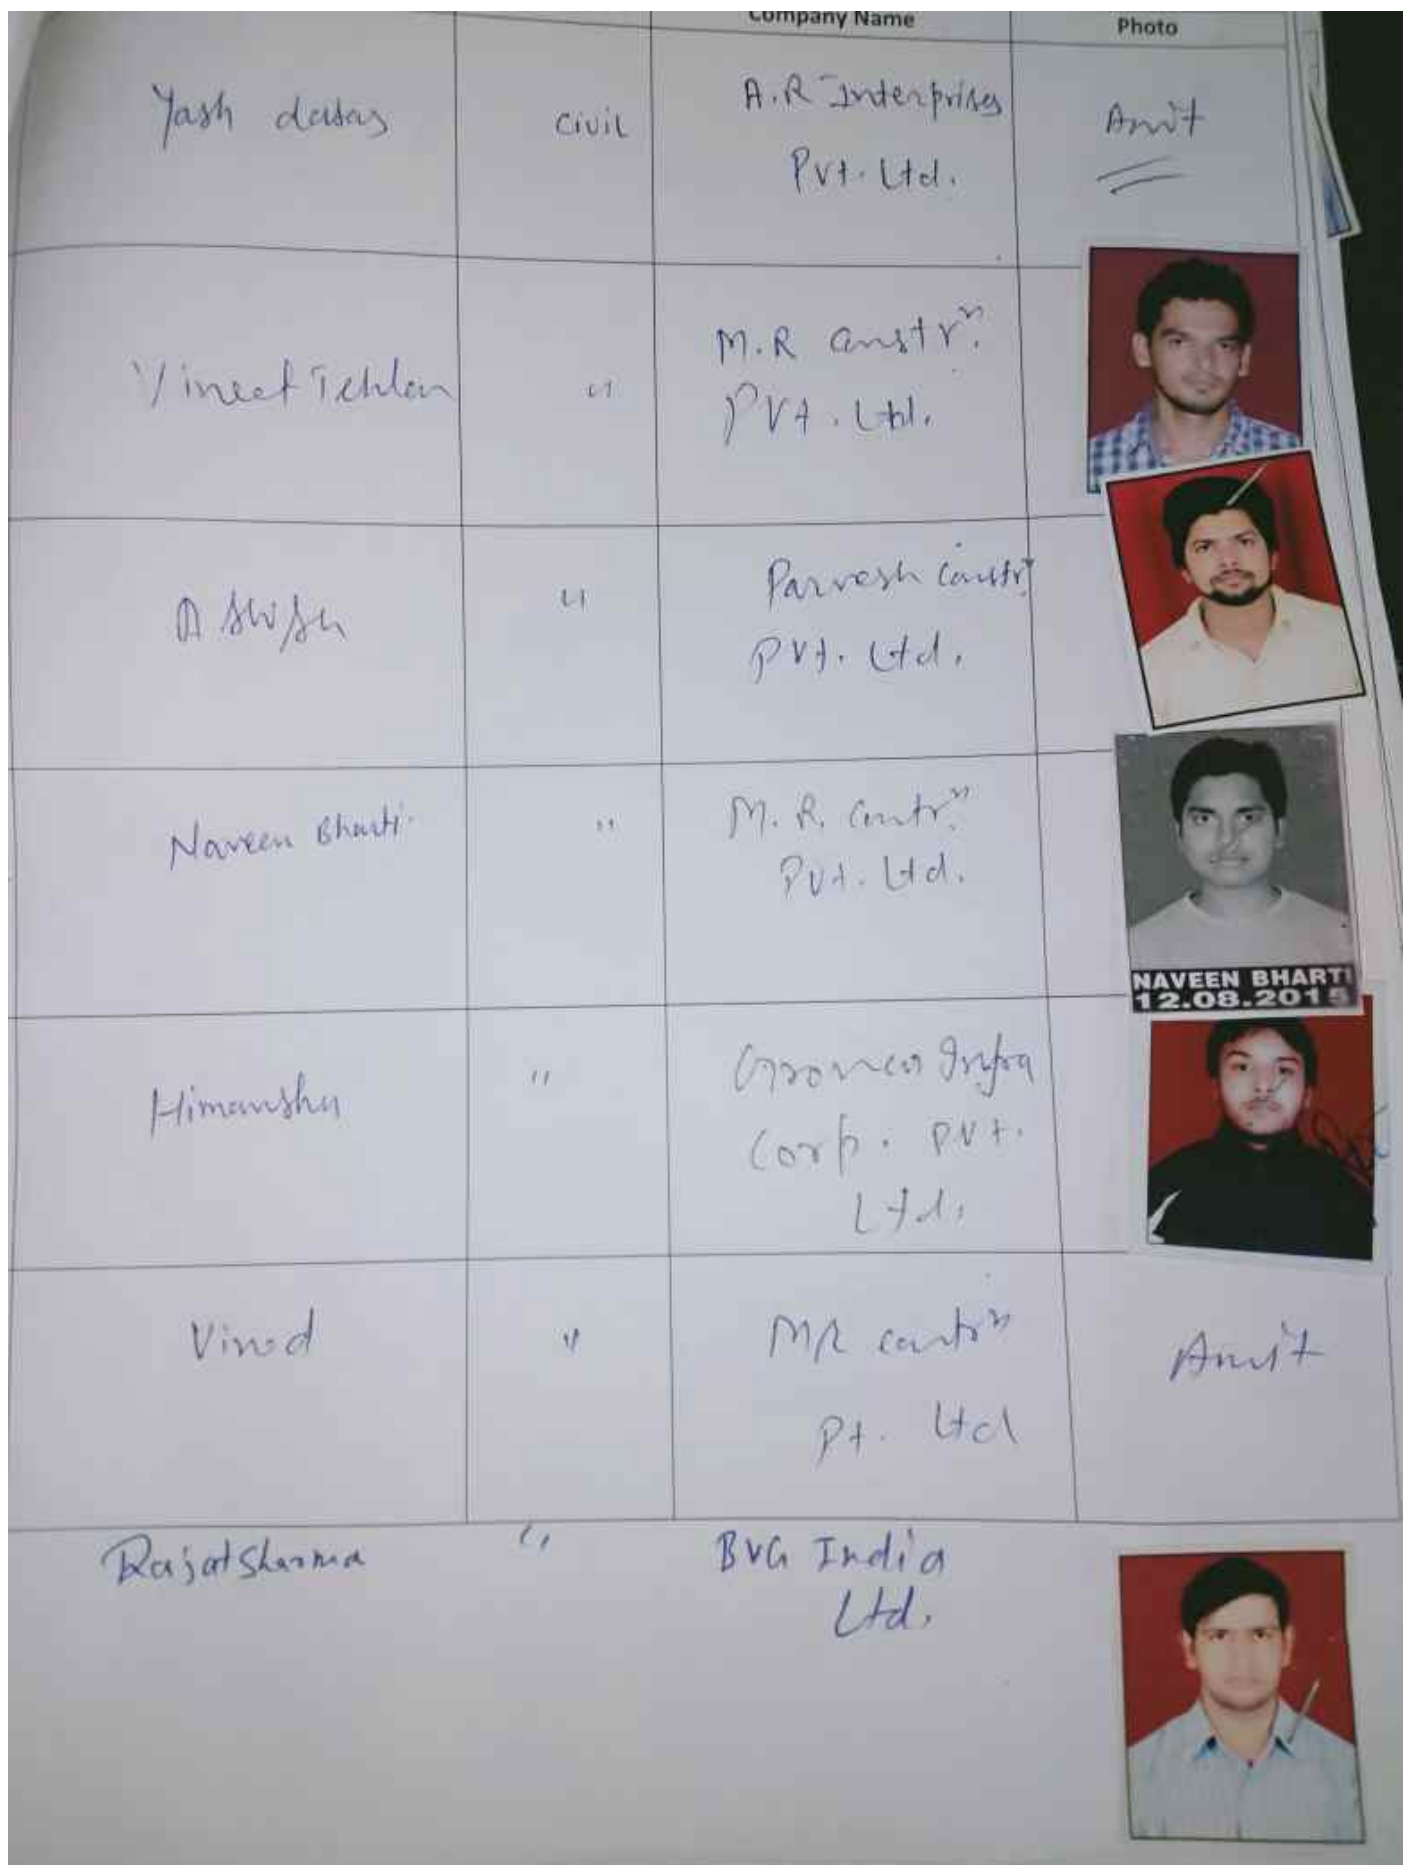 Company Name
Photo
Yash
Civil
A.R Interprises
Pvt. Ltd.
Amit
Vineet Tehlan
"
M.R Constrn.
PVt. Ltd.
"
Parvesh Constrn.
PVt. Ltd.
Naveen Bharti
"
M.R. Contrn.
Pvt. Ltd.
NAVEEN BHARTI
12.08.2015
Himanshu
"
Infra
Corp. PVt.
Ltd.
Vinod
"
MR contrn
Pt. Ltd
Amit
Rajat Sharma
"
BVG India
Ltd.